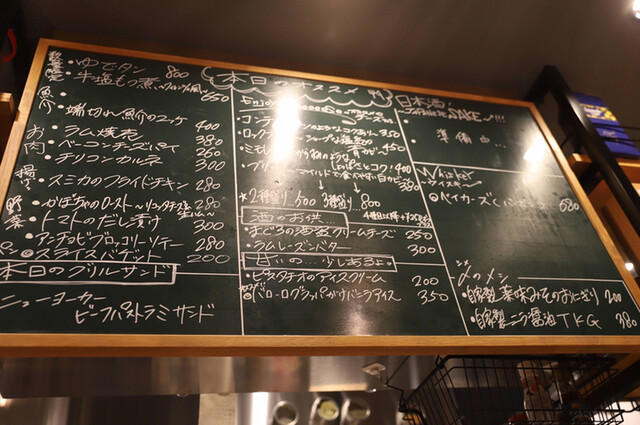 数量限定
・ゆでタン 800
・牛塩もつ煮
650
魚介
・端切れ魚介のユッケ 400
お肉
ラム焼売 380
・ベーコンチーズパイ 260
・チリコンカルネ 300
揚げ
・スミカのフライドチキン 280
野菜
・かぼちゃのロースト 280
・トマトのだし漬け 300
・アンチョビブロッコリーソテー 280
スライスバゲット 200
本日のグリルサンド
ニューヨーカー
ビーフパストラミサンド
本日のオススメ
Enjoy
350
450
400
380
★2種盛り 600 3種盛り 800
酒のお供...
・まぐろの酒盗クリームチーズ 250
・ラムレーズンバター 300
甘いの...少しあるよ。
・ピスタチオのアイスクリーム 380
バローログラッパがけバニラアイス 350
日本酒!
JAPANESE SAKE!!!
準備中…
Whiskey
ウイスキー
ベイカーズ 680
〆のメシ
・自家製薬味みそのおにぎり 200
・自家製ニラ醤油TKG 380